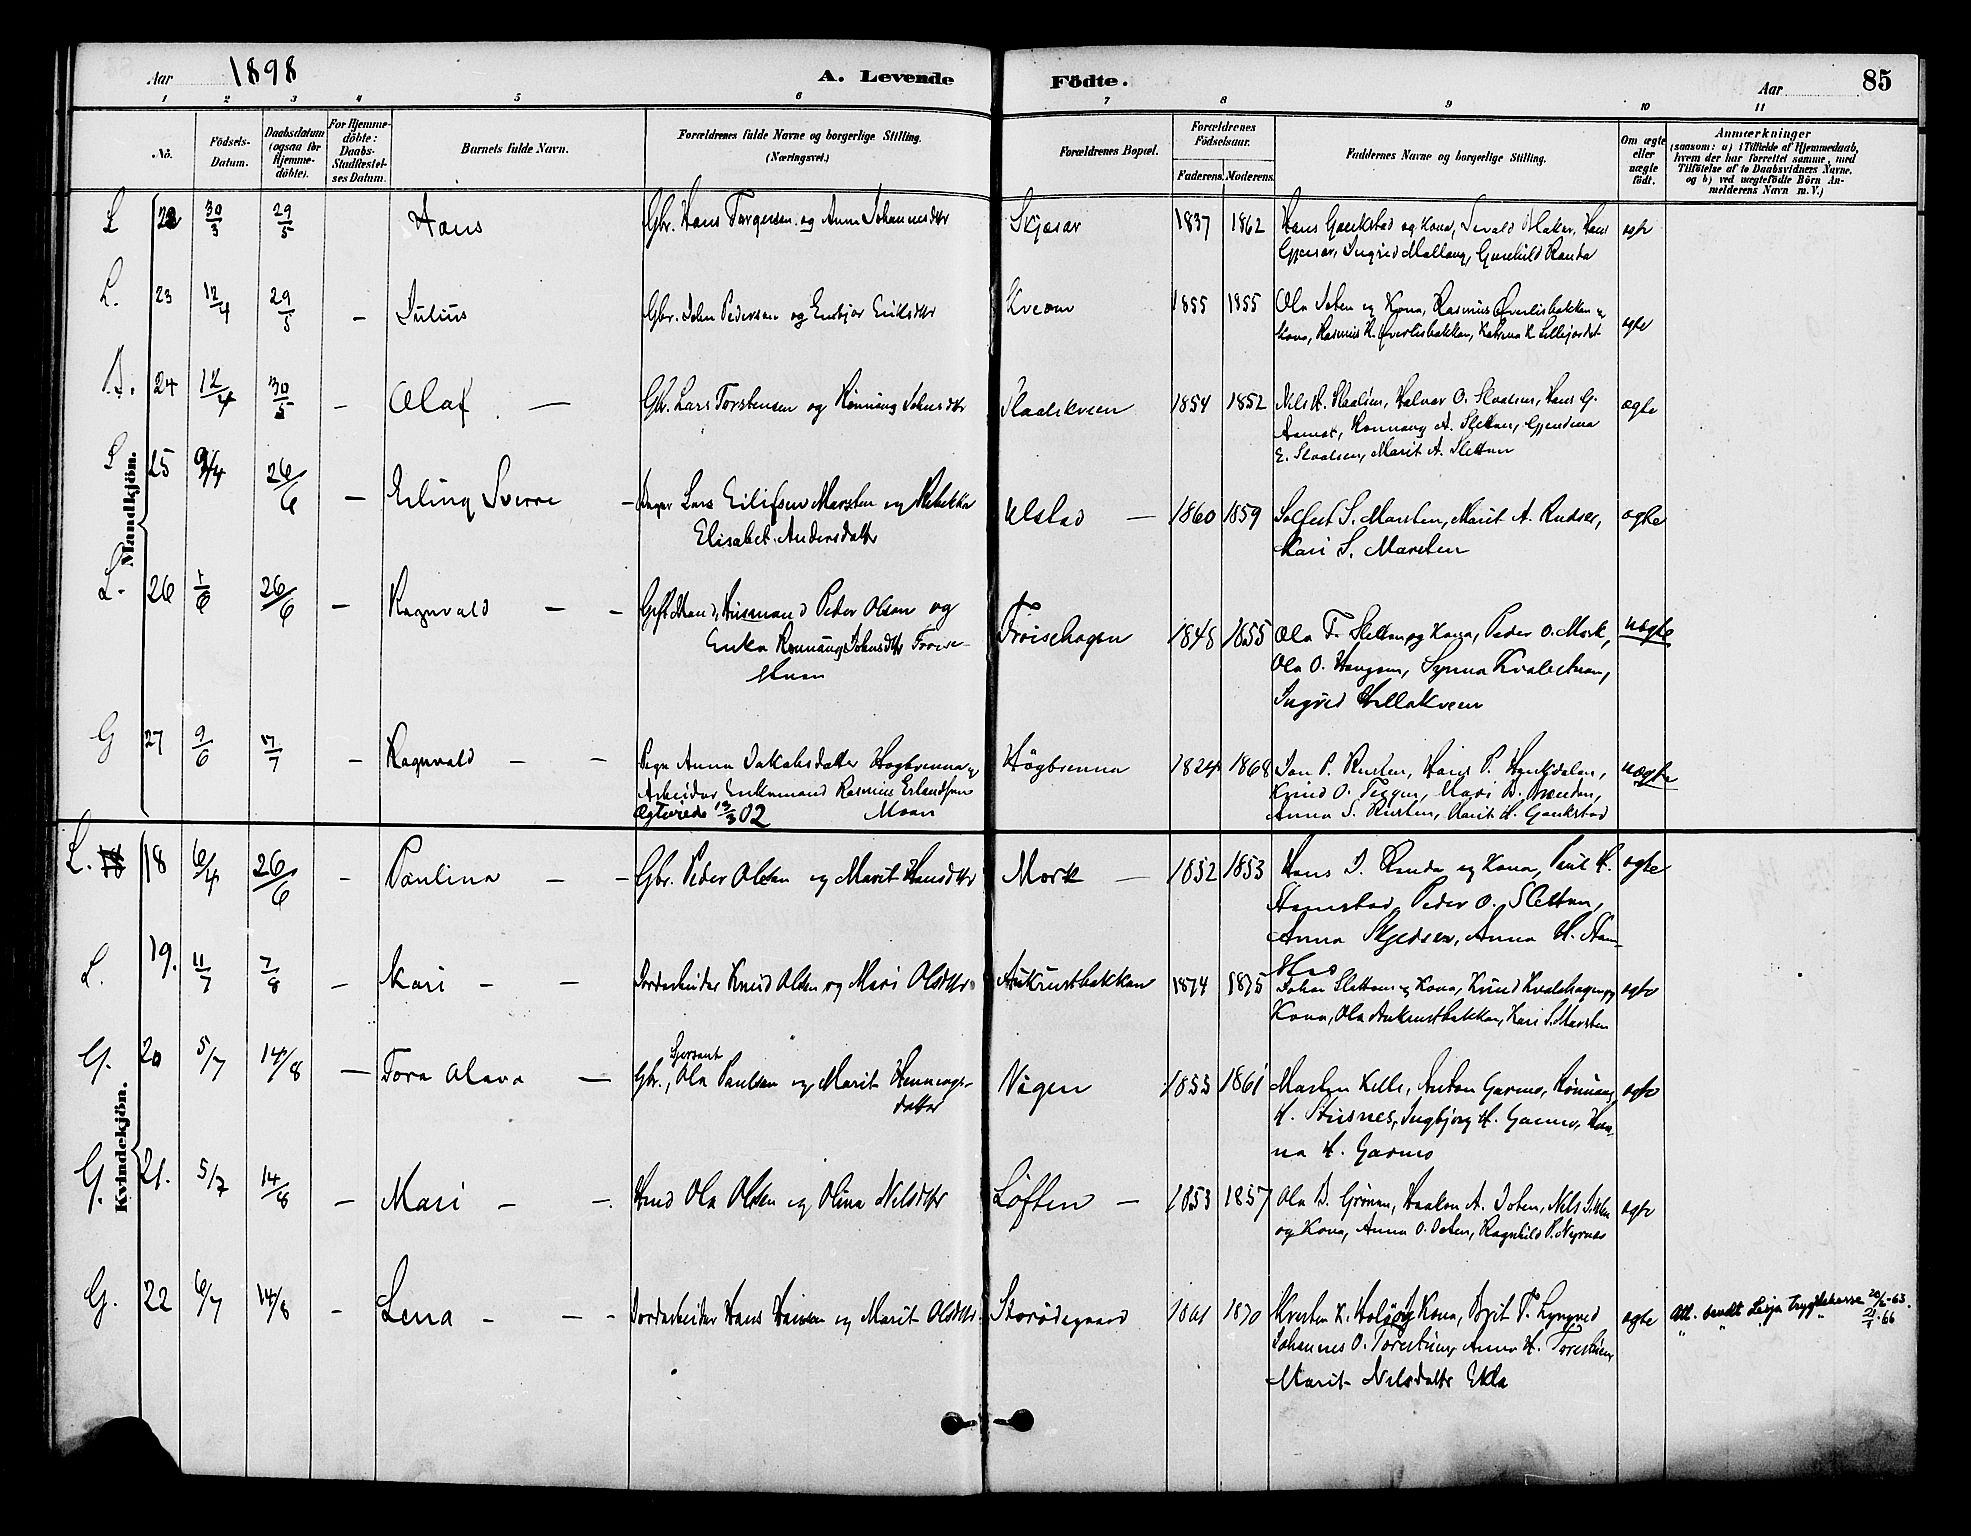 Aar 1898 A. Levende Födte. Aar 85
1 2 3 4 5 6 7 8 9 10 11
No. Födsels-Datum. Daabsdatum (ogsaa for Hjemme-döbte). For Hjemme-döbte: Daabs-Stadfæstel-ses Datum. Barnets fulde Navn. Forældrenes fulde Navne og borgerlige Stilling. (Næringsvei.) Forældrenes Bopæl. Forældrenes Födselsaar. Faderens. Moderens. Faddernes Navne og borgerlige Stilling. Om ægte eller uægte födt. Anmærkninger
(saasom: a) i Tilfælde af Hjemmedaab,
hvem der har forrettet samme, med
Tilföielse af to Daabsvidners Navne,
og b) ved uægtefödte Börn An-
melderens Navn m. V.)
Mandkjön.
L 22 30/3 29/5 Hans Gbr. Hans Torgersen og Anne Johannesdtr Skjæsar 1837 1862 Hans Gaukstad og Kona, Sevald Blaker, Hans
Ingrid Mallang, Gunhild Randa ægte
L. 23 12/4 29/5 – Julius Gbr. John Pedersen og Enbjør Eriksdtr Kveom 1855 1855 Ola Joten og Kona, Rasmus Øverlisbakken og
Kona, Rasmus R. Øverlisbakken, Katrina K. Lillejordet ægte
24 12/4 30/5 – Olaf – Gbr. Lars Torstensen og Rønnaug Johnsdtr 1854 1852 Nils H. Staalsen, Halvor O. Staalsen, Hans G.
Rønnaug A. Sletten, Gjendina
E. Staalsen, Marit A. Sletten ægte
L 25 9/4 26/6 – Erling Sverre – Lars Eilifsen Marsten og Rebekka
Elisabet Andersdatter Ulstad – 1860 1859 Solfest S. Marsten, Marit A. Rudser,
Kari S. Marsten ægte
L. 26 1/6 26/6 – Ragnvald – – Gift Mand, Husmand Peder Olsen og
Enka Rønnaug Johnsdtr Froise-
Froisehagen 1848 1855 Ola T. Sletten og Kona, Peder O. Mork,
Ola O. Haugen, Synna Kvalestuen,
Ingrid Hellakveen uægte
G 27 9/6 17/7 – Ragnvald – – Pige Anna Jakobsdatter Høgbrenna og
Arbeider Enkemand Rasmus Erlandsen
Ægteviede 19/3 02 Moan Høgbrenna 1824 1868 Jon P. Rusten, Hans P. Høykjdalen,
Knud O. Mari B. Brenden,
Anna S. Rusten, Marit H. Gaukstad uægte
Kvindekjön.
L. 18 6/4 26/6 – Paulina – – Gbr. Peder Olsen og Marit Hansdtr Mork – 1852 1853 Hans J. Randa og Kona, Paul H.
Hamstad Peder O. Sletten,
Anna Skjedsen, Anna H. Ham-
stad ægte
L. 19. 11/7 7/8 – Kari – – Jordarbeider Knud Olsen og Mari Olsdtr Aukrustbakkan 1874 1875 Johan Sletten og Kona, Knud Kvalehagen og
Kona, Ola Aukrustbakken, Kari S. Marsten ægte
G. 20 5/7 14/8 – Tora Olava – Gbr., Sersant Ola Paulsen og Marit Hennings-
datter Vigen 1855 1861 Marten Kille, Anton Garmo, Rønnaug
H. Stusnes, Ingbjørg H. Garmo, Han-
na H. Garmo ægte
G. 21. 5/7 14/8 – Mari – – Hmd Ola Olsen og Olina Nilsdtr Løften – 1853 1857 Ola B. Grønen, Haakon A. Joten, Nils
og Kona, Anna O. Joten, Ragnhild P. Nyrnes ægte
G. 22 6/7 14/8 – Lena – – Jordarbeider Hans Hansen og Marit Olsdtr Storødegaard 1861 1870 Kona, Brit T. Lyngved
Johannes O. Torestuen, Anne H. Torestuen
Marit Nilsdatter Ekla ægte Att. sendt Lesja trygdekasse 20/5-63.
" " " " 21/1-66